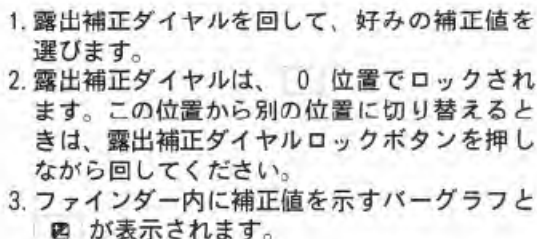 1. 露出補正ダイヤルを回して、好みの補正値を
選びます。
2. 露出補正ダイヤルは、 0 位置でロックされ
ます。この位置から別の位置に切り替えると
きは、露出補正ダイヤルロックボタンを押し
ながら回してください。
3. ファインダー内に補正値を示すバーグラフと
が表示されます。